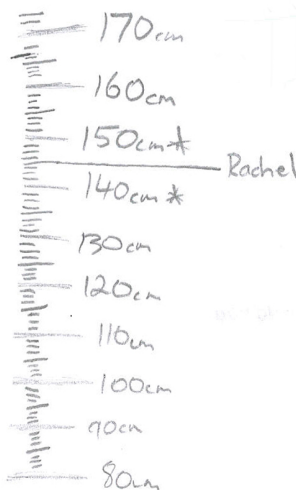 170cm
160cm
150cm*
Rachel
140cm *
130cm
120cm
110cm
100cm
90cm
80cm